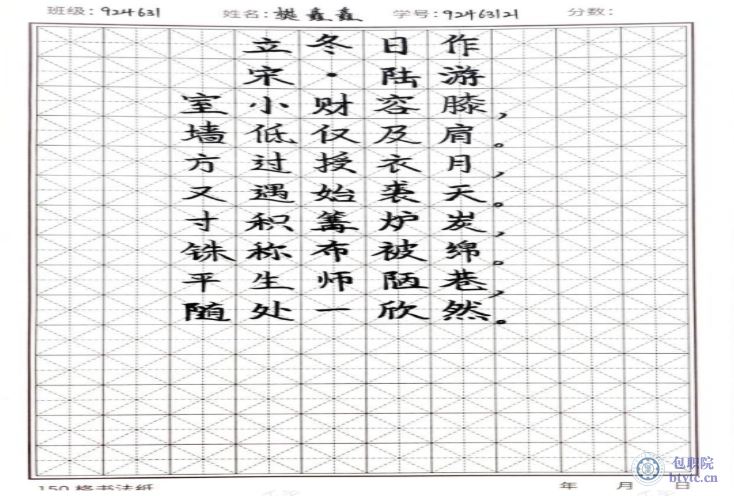 班级: 924631 姓名: 樊鑫鑫 学号: 92463121 分数:
立冬日作
宋·陆游
室小财容膝,
墙低仅及肩。
方过授衣月,
又遇始裘天。
寸积篝炉炭,
铢称布被绵。
平生师陋巷,
随处一欣然。
150格书法纸 年 月 日
包职院
btvtc.cn